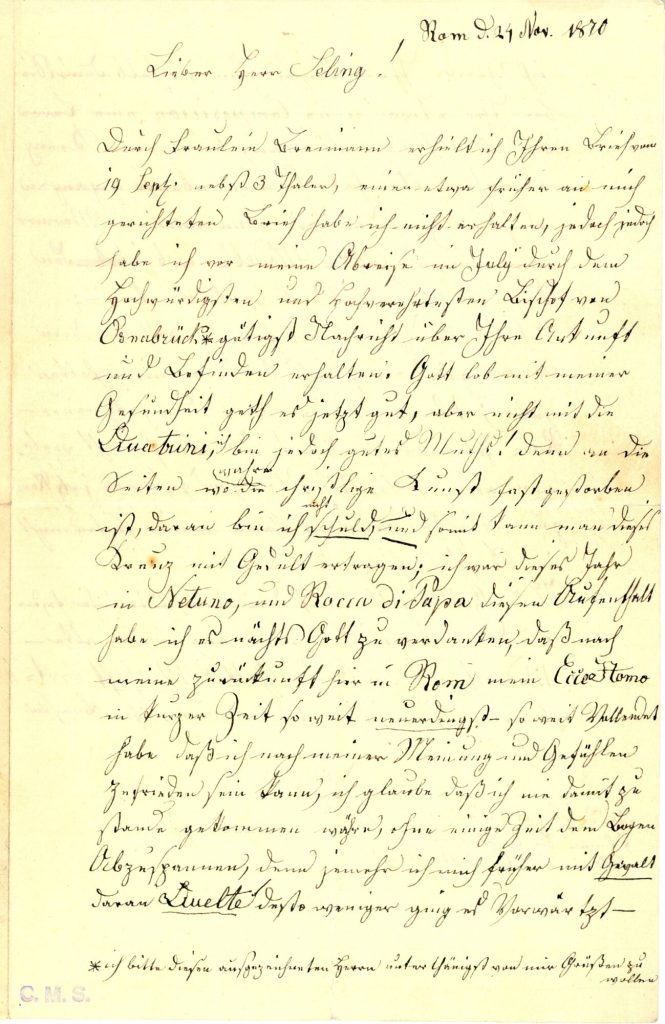 Rom d. 24 Nov. 1870
Lieber Herr Seling!
Durch Fraulein Breimann erhielt ich Ihren Brief vom
19 Sept. nebst 3 Thaler, einen etwa früher an mich
gerichteten Brief habe ich nicht erhalten, jedoch jedoch
habe ich vor meine Abreise im July durch dem
Hochwürdigsten und Hochverehrtesten Bischof von
Osnabrück* gütigst Nachricht über Ihre Ankunft
und Befinden erhalten. Gott lob mit meiner
Gesundheit geth es jetzt gut, aber nicht mit die
Quatrini, ich bin jedoch gutes Muths! denn an die
Seiten wo die wahre christlige Kunst fast gestorben
ist, daran bin ich nicht schuld, und somit kann man dieses
Kreuz mit Gedult ertragen; ich war dieses Jahr
in Netuno, und Rocca di Papa diesen Aufenthalt
habe ich es nächts Gott zu verdanken, daß nach
meine zurückunft hier in Rom mein Ecce Homo
in kurzer Zeit so weit neuerdingst – so weit Vollendet
habe daß ich nach meiner Meinung und Gefühlen
zufrieden sein kann, ich glaube daß ich nie damit zu
stande gekommen währe, ohne einige Zeit dem Bogen
Abzuspannen, denn jemehr ich mich früher mit Gewalt
daran Quelte desto weniger ging es Vorwärtzt –
*ich bitte diesen ausgezeichneten Herrn unterthänigst von mir Grüßen zu
wollen
C. M. S.